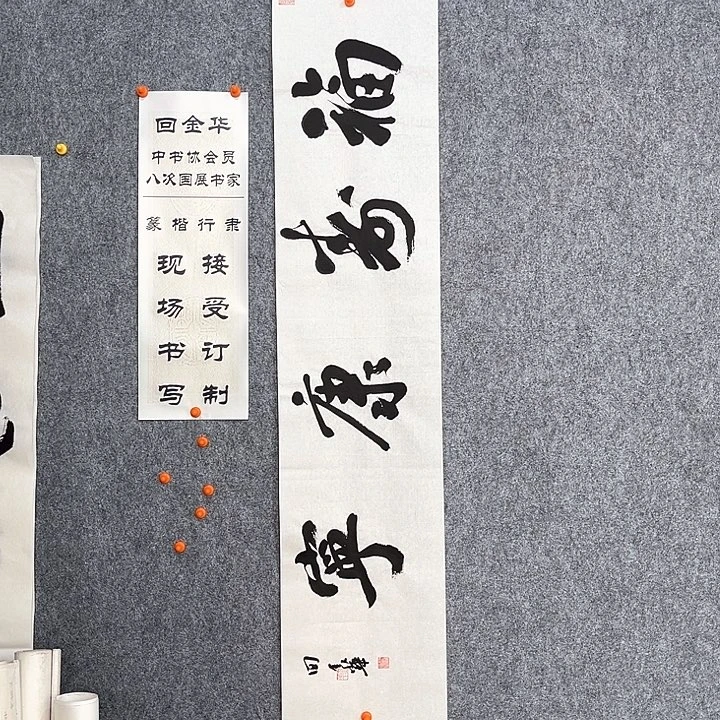 回金华
中书协会员
八次国展书家
篆楷行隶
现场书写
接受订制
福寿康寧
回金華